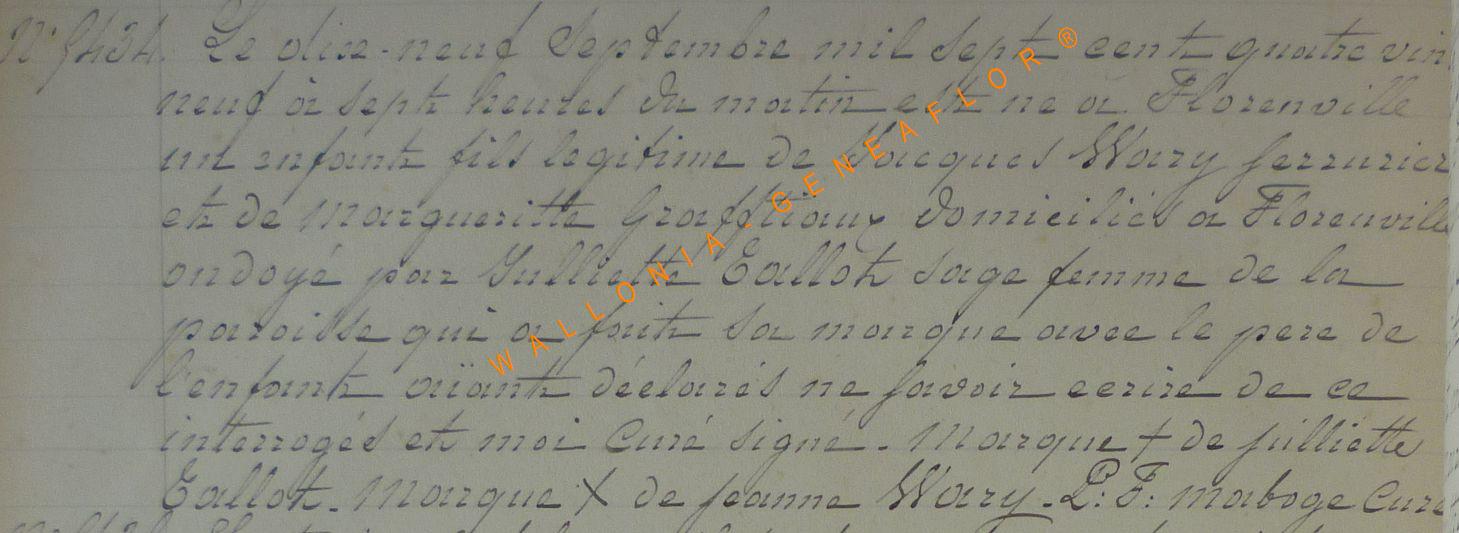 N° 5434. Le dixe-neuf Septembre mil sept cent quatre vin
neuf à sept heures du matin est ne a Florenville
un enfant fils legitime de Jacques Wary serrurier
et de Margueritte Grafftiaux domiciliés a Florenville
ondoyé par Julliette Tallot sage femme de la
paroisse qui a fait sa marque avec le pere de
l'enfant aïant déclarés ne savoir ecrire de ce
interrogés et moi Curé signé. Marque + de Julliette
Tallot. Marque X de Jeanne Wary. P: F: Maboge Curé
WALLONIA - GENEAFLOR ®